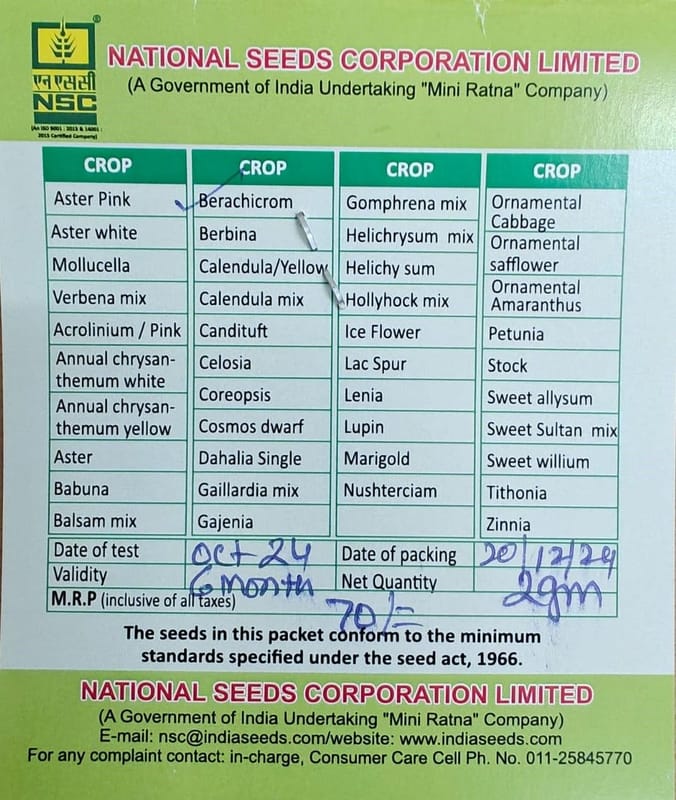 ®
एन एस सी
NSC
(An ISO 9001 : 2015 & 14001 :
2015 Certified Company)
NATIONAL SEEDS CORPORATION LIMITED
(A Government of India Undertaking "Mini Ratna" Company)
CROP CROP CROP CROP
Aster Pink ✓ Berachicrom Gomphrena mix Ornamental Cabbage
Aster white Berbina Helichrysum mix Ornamental safflower
Mollucella Calendula/Yellow Helichy sum Ornamental Amaranthus
Verbena mix Calendula mix Hollyhock mix Petunia
Acrolinium / Pink Candituft Ice Flower Stock
Annual chrysan-themum white Celosia Lac Spur Sweet allysum
Annual chrysan-themum yellow Coreopsis Lenia Sweet Sultan mix
Aster Cosmos dwarf Lupin Sweet willium
Babuna Dahalia Single Marigold Tithonia
Balsam mix Gaillardia mix Nushterciam Zinnia
Gajenia
Date of test Oct-24 Date of packing 20/12/24
Validity 6 month Net Quantity 2gm
M.R.P (inclusive of all taxes) 70/=
The seeds in this packet conform to the minimum
standards specified under the seed act, 1966.
NATIONAL SEEDS CORPORATION LIMITED
(A Government of India Undertaking "Mini Ratna" Company)
E-mail: nsc@indiaseeds.com/website: www.indiaseeds.com
For any complaint contact: in-charge, Consumer Care Cell Ph. No. 011-25845770